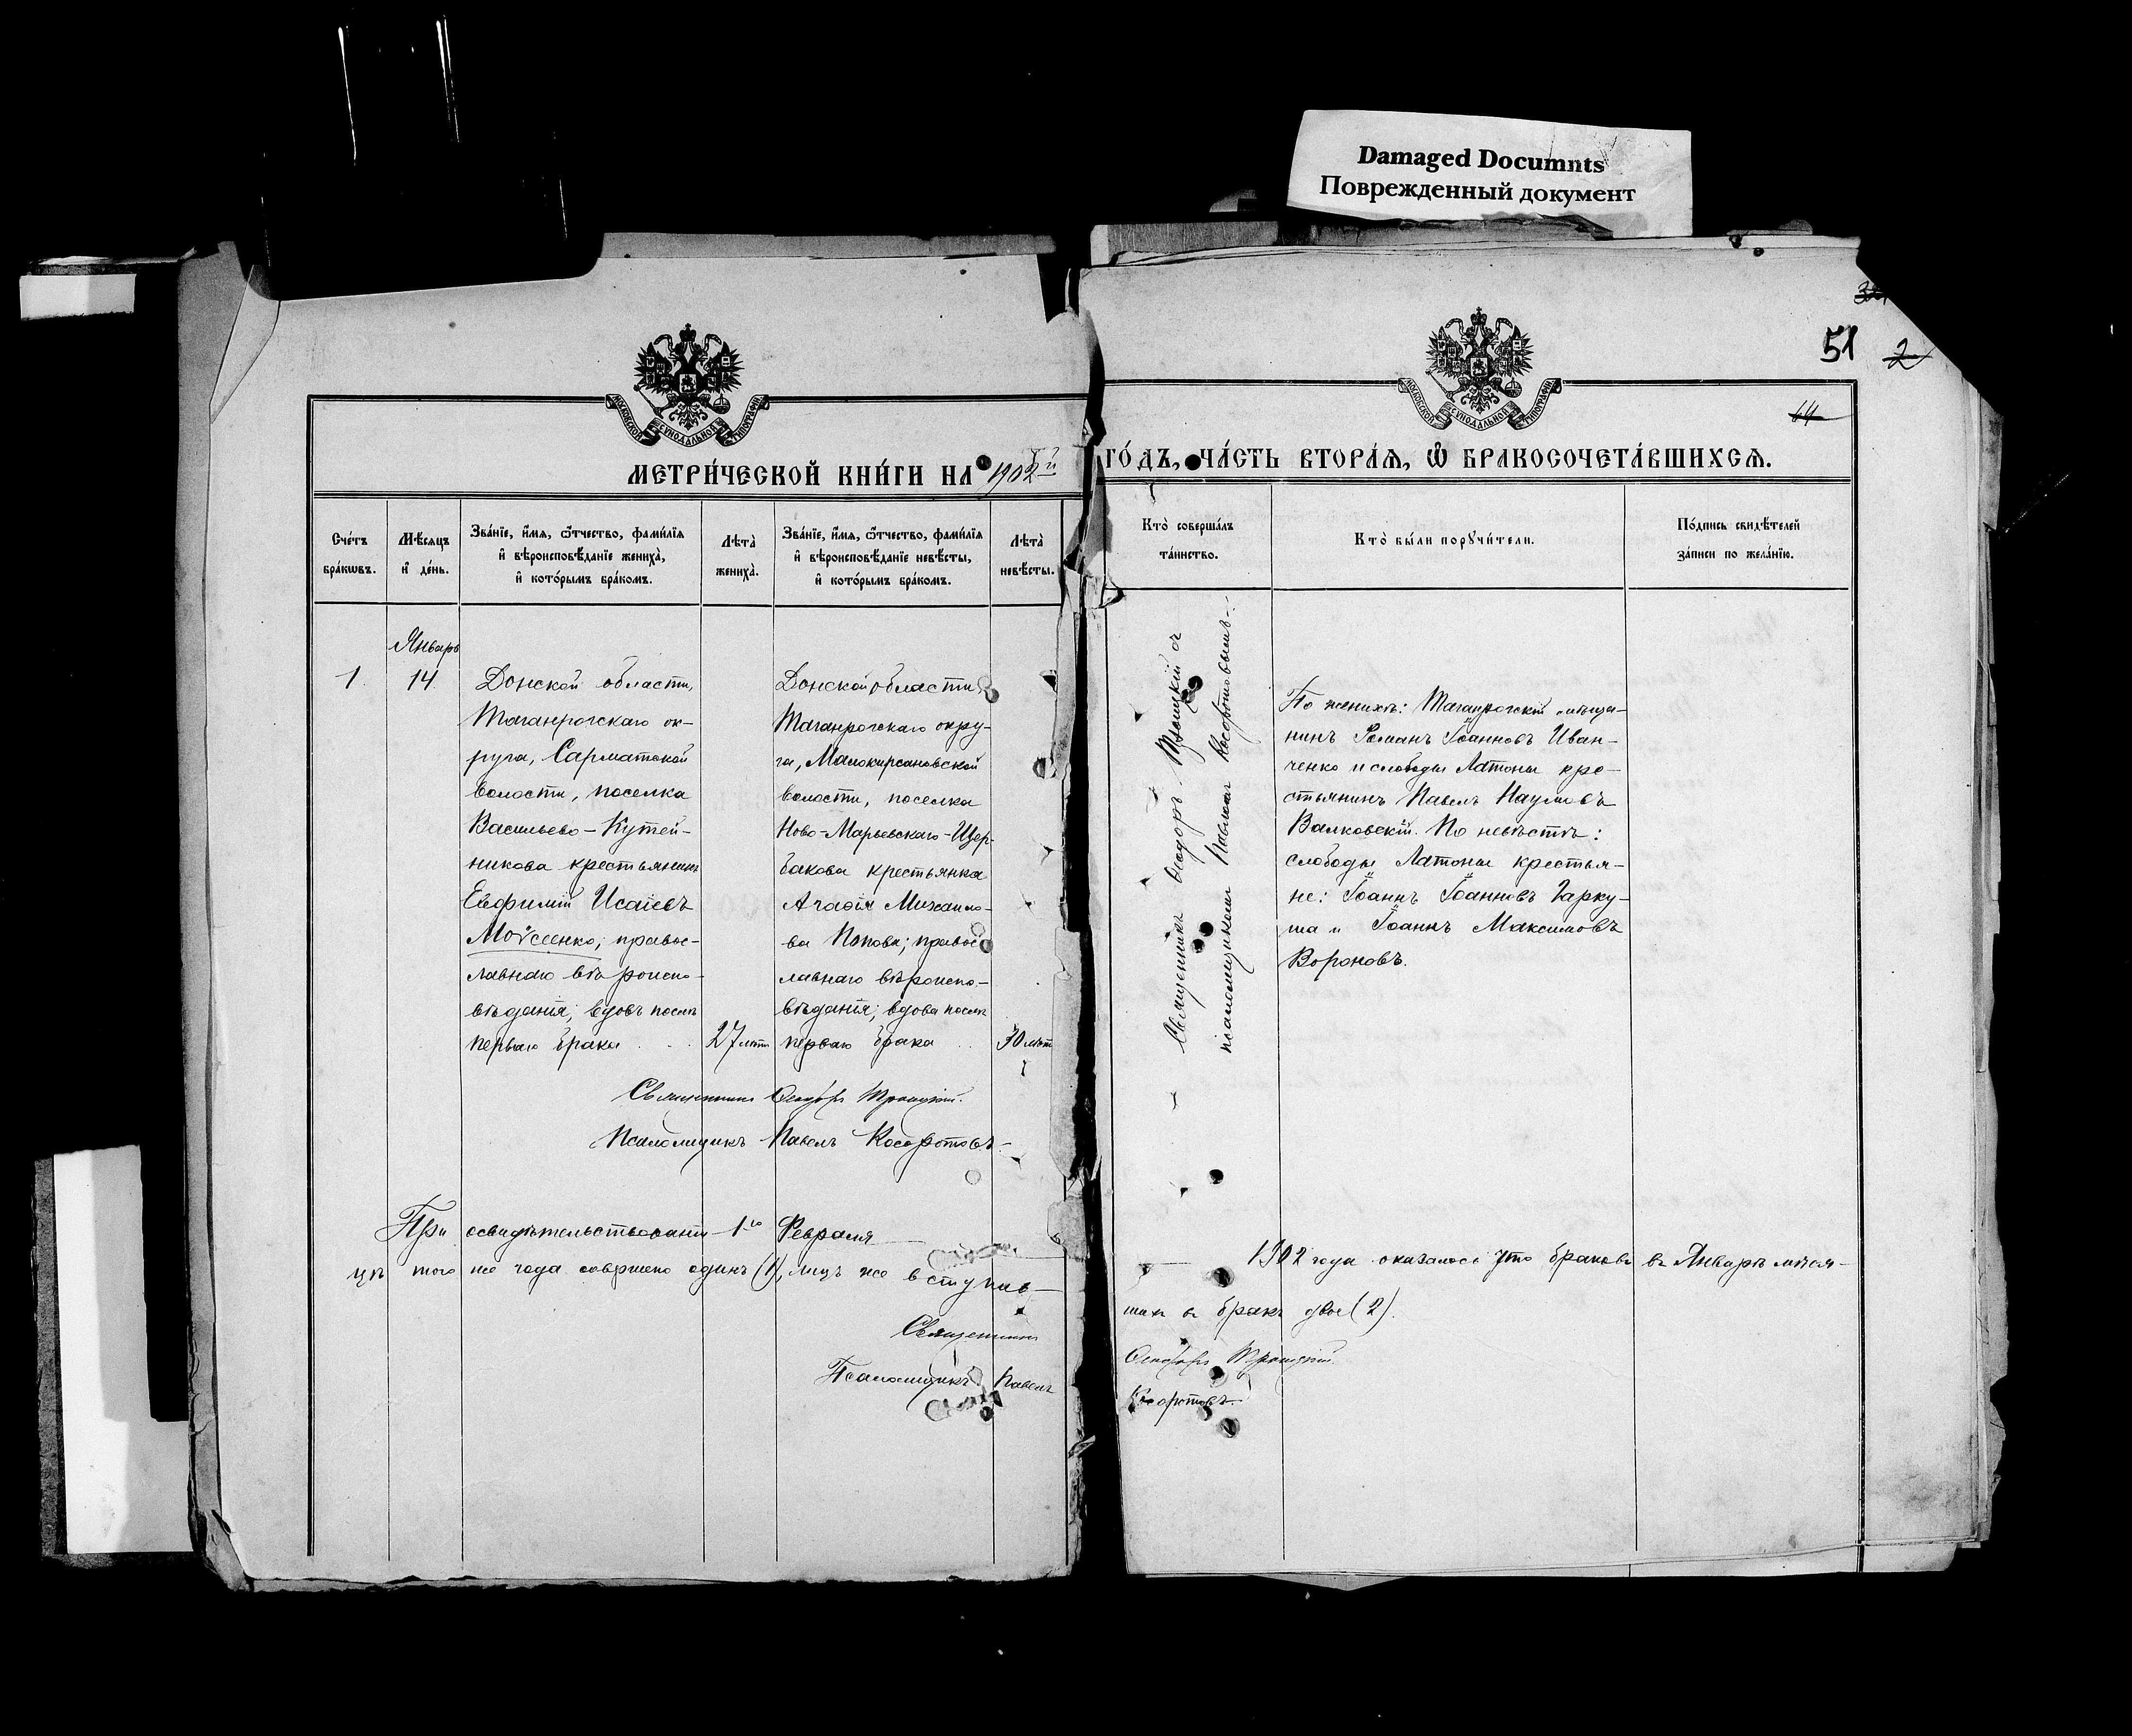 Damaged Documnts
Поврежденный документ
51
2
64
МОСКОВСКОЙ СѴНОДАЛЬНОЙ ТИПОГРАФІИ
МОСКОВСКОЙ СѴНОДАЛЬНОЙ ТИПОГРАФІИ
МЕТРИ́ЧЕСКОЙ КНИ́ГИ НА 1902й
ГО́ДЪ, ЧА́СТЬ ВТОРА́Ѧ, Ѡ҆ БРАКОСОЧЕТА́ВШИХСѦ.
Сче́тъ
бра́кѡвъ.
Мѣ́сяцъ
и҆ де́нь.
Зва́нїе, и҆́мѧ, ѻ҆́тчество, фами́лїѧ
и҆ вѣроисповѣ́данїе жениха̀,
и҆ кото́рымъ бра́комъ.
Лѣта̀
жениха̀.
Зва́нїе, и҆́мѧ, ѻ҆́тчество, фами́лїѧ
и҆ вѣроисповѣ́данїе невѣ́сты,
и҆ кото́рымъ бра́комъ.
Лѣта̀
невѣ́сты.
Кто̀ соверша́лъ
та́инство.
Кто̀ бы́ли порꙋчи́тели.
По́дпись свидѣ́телей
за́писи по жела́нїю.
Январь
1.
14
Донской области,
Таганрогскаго ок-
руга, Сарматской
волости, поселка
Васильево-Кутей-
никова крестьянинъ
Евфимій Исаіевъ
Мойсеенко; правос-
лавнаго вѣроиспо-
вѣданія; вдовъ послѣ
перваго брака
27 лѣтъ
Донской области
Таганрогскаго окру-
га, Малокирсановской
волости, поселка
Ново-Марьевскаго-Щер-
бакова крестьянка
Агаѳія Михаило-
ва Попова; правос
лавнаго вѣроиспо-
вѣданія; вдова послѣ
перваго брака
30 лѣтъ
Священникъ Ѳеодоръ Троицкій съ
псаломщикомъ Павломъ Косоротовымъ.
По женихѣ: Таганрогскій мѣща-
нинъ Романъ Іоанновъ Иван-
ченко и слободы Латоны кре-
стьянинъ Павелъ Наумовъ
Валковскій. По невѣстѣ:
слободы Латоны крестья-
не: Іоаннъ Іоанновъ Гарку-
ша и Іоаннъ Максимовъ
Вороновъ.
Священникъ Ѳеодоръ Троицкій.
Псаломщикъ Павелъ Косоротовъ
При освидѣтельствованіи 1го Февраля
1902 года оказалось что браковъ въ Январѣ мѣся-
цѣ того же года совершено одинъ (1), лицъ же вступив-
шихъ въ бракъ двое (2).
Священникъ Ѳеодоръ Троицкій.
Псаломщикъ Павелъ Косоротовъ